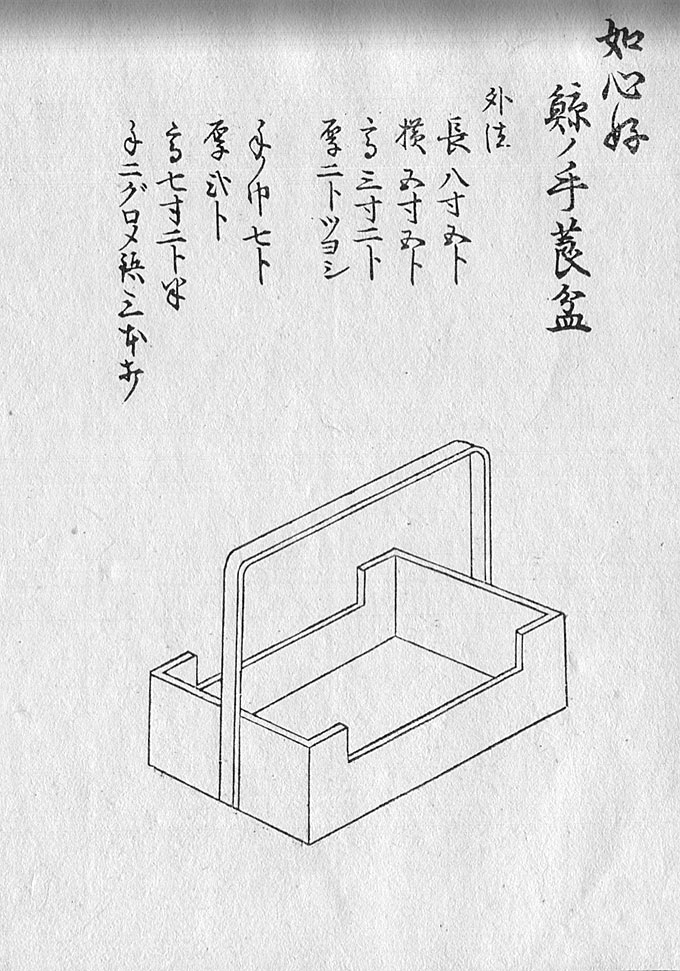 如心好
鯨ノ手莨盆
外法
長八寸五卜
横五寸五卜
高三寸二卜
厚二卜ツヨシ
手ノ巾七卜
厚弐卜
高七寸二卜半
手ニグロメ鋲三本打